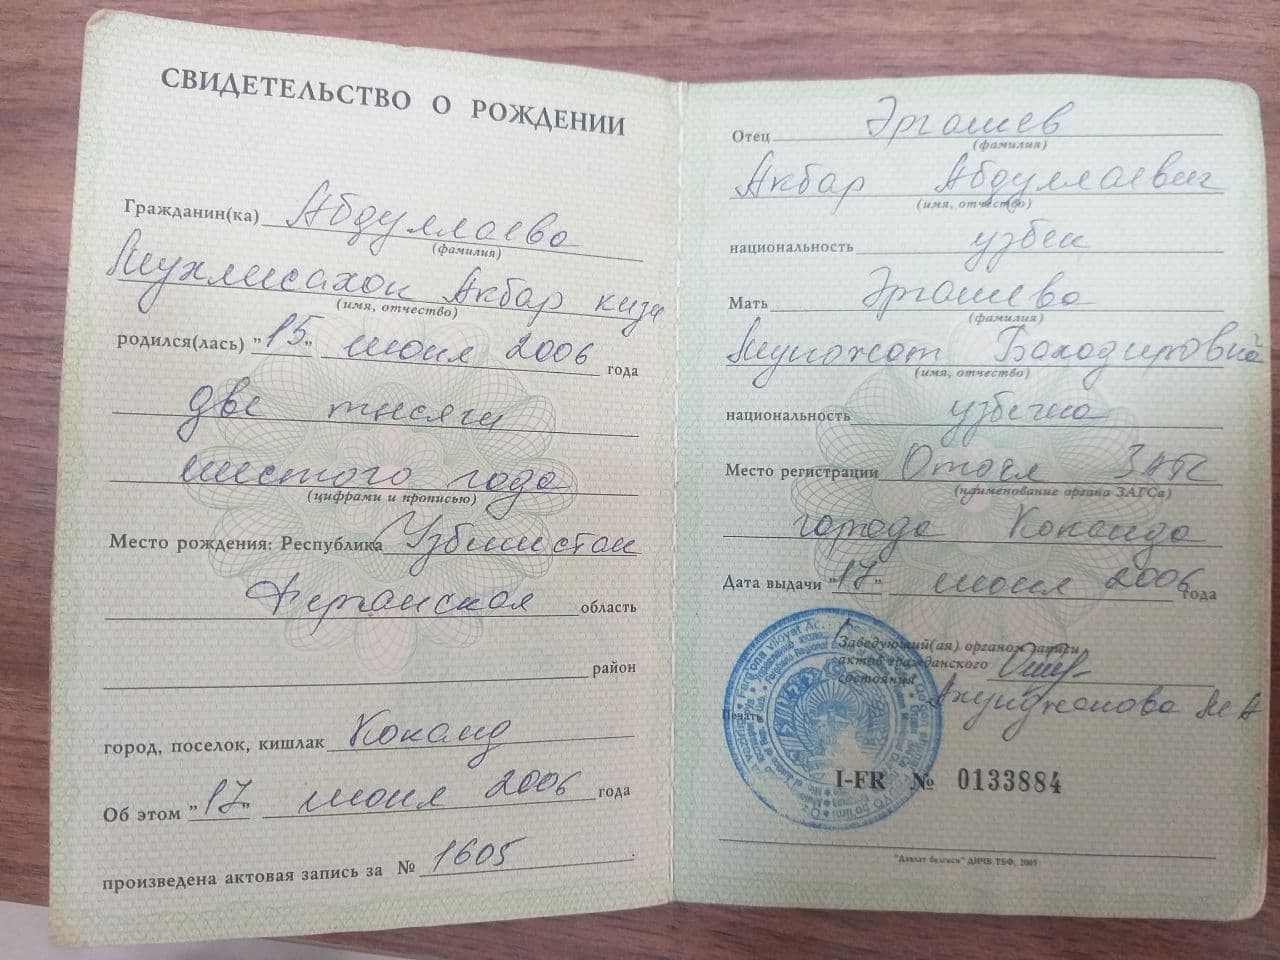 СВИДЕТЕЛЬСТВО О РОЖДЕНИИ
Гражданин(ка) Абдуллаева
(фамилия)
Мухлисахон Акбар кизи
(имя, отчество)
родился(лась) "15" июня 2006 года
две тысячи
шестого года
(цифрами и прописью)
Место рождения: Республика Узбекистан
Ферганская область
район
город, поселок, кишлак Коканд
Об этом "17" июня 2006 года
произведена актовая запись за № 1605
Отец Эргашев
(фамилия)
Акбар Абдуллаевич
(имя, отчество)
национальность узбек
Мать Эргашева
(фамилия)
Муножот Баходировна
(имя, отчество)
национальность узбечка
Место регистрации Отдел ЗАГС
(наименование органа ЗАГСа)
города Коканда
Дата выдачи "17" июня 2006 года
Заведующий(ая) органом записи
актов гражданского
состояния
Ахунджанова М А
Печать
I-FR № 0133884
"Давлат белгиси" ДИЧБ ТБФ, 2005